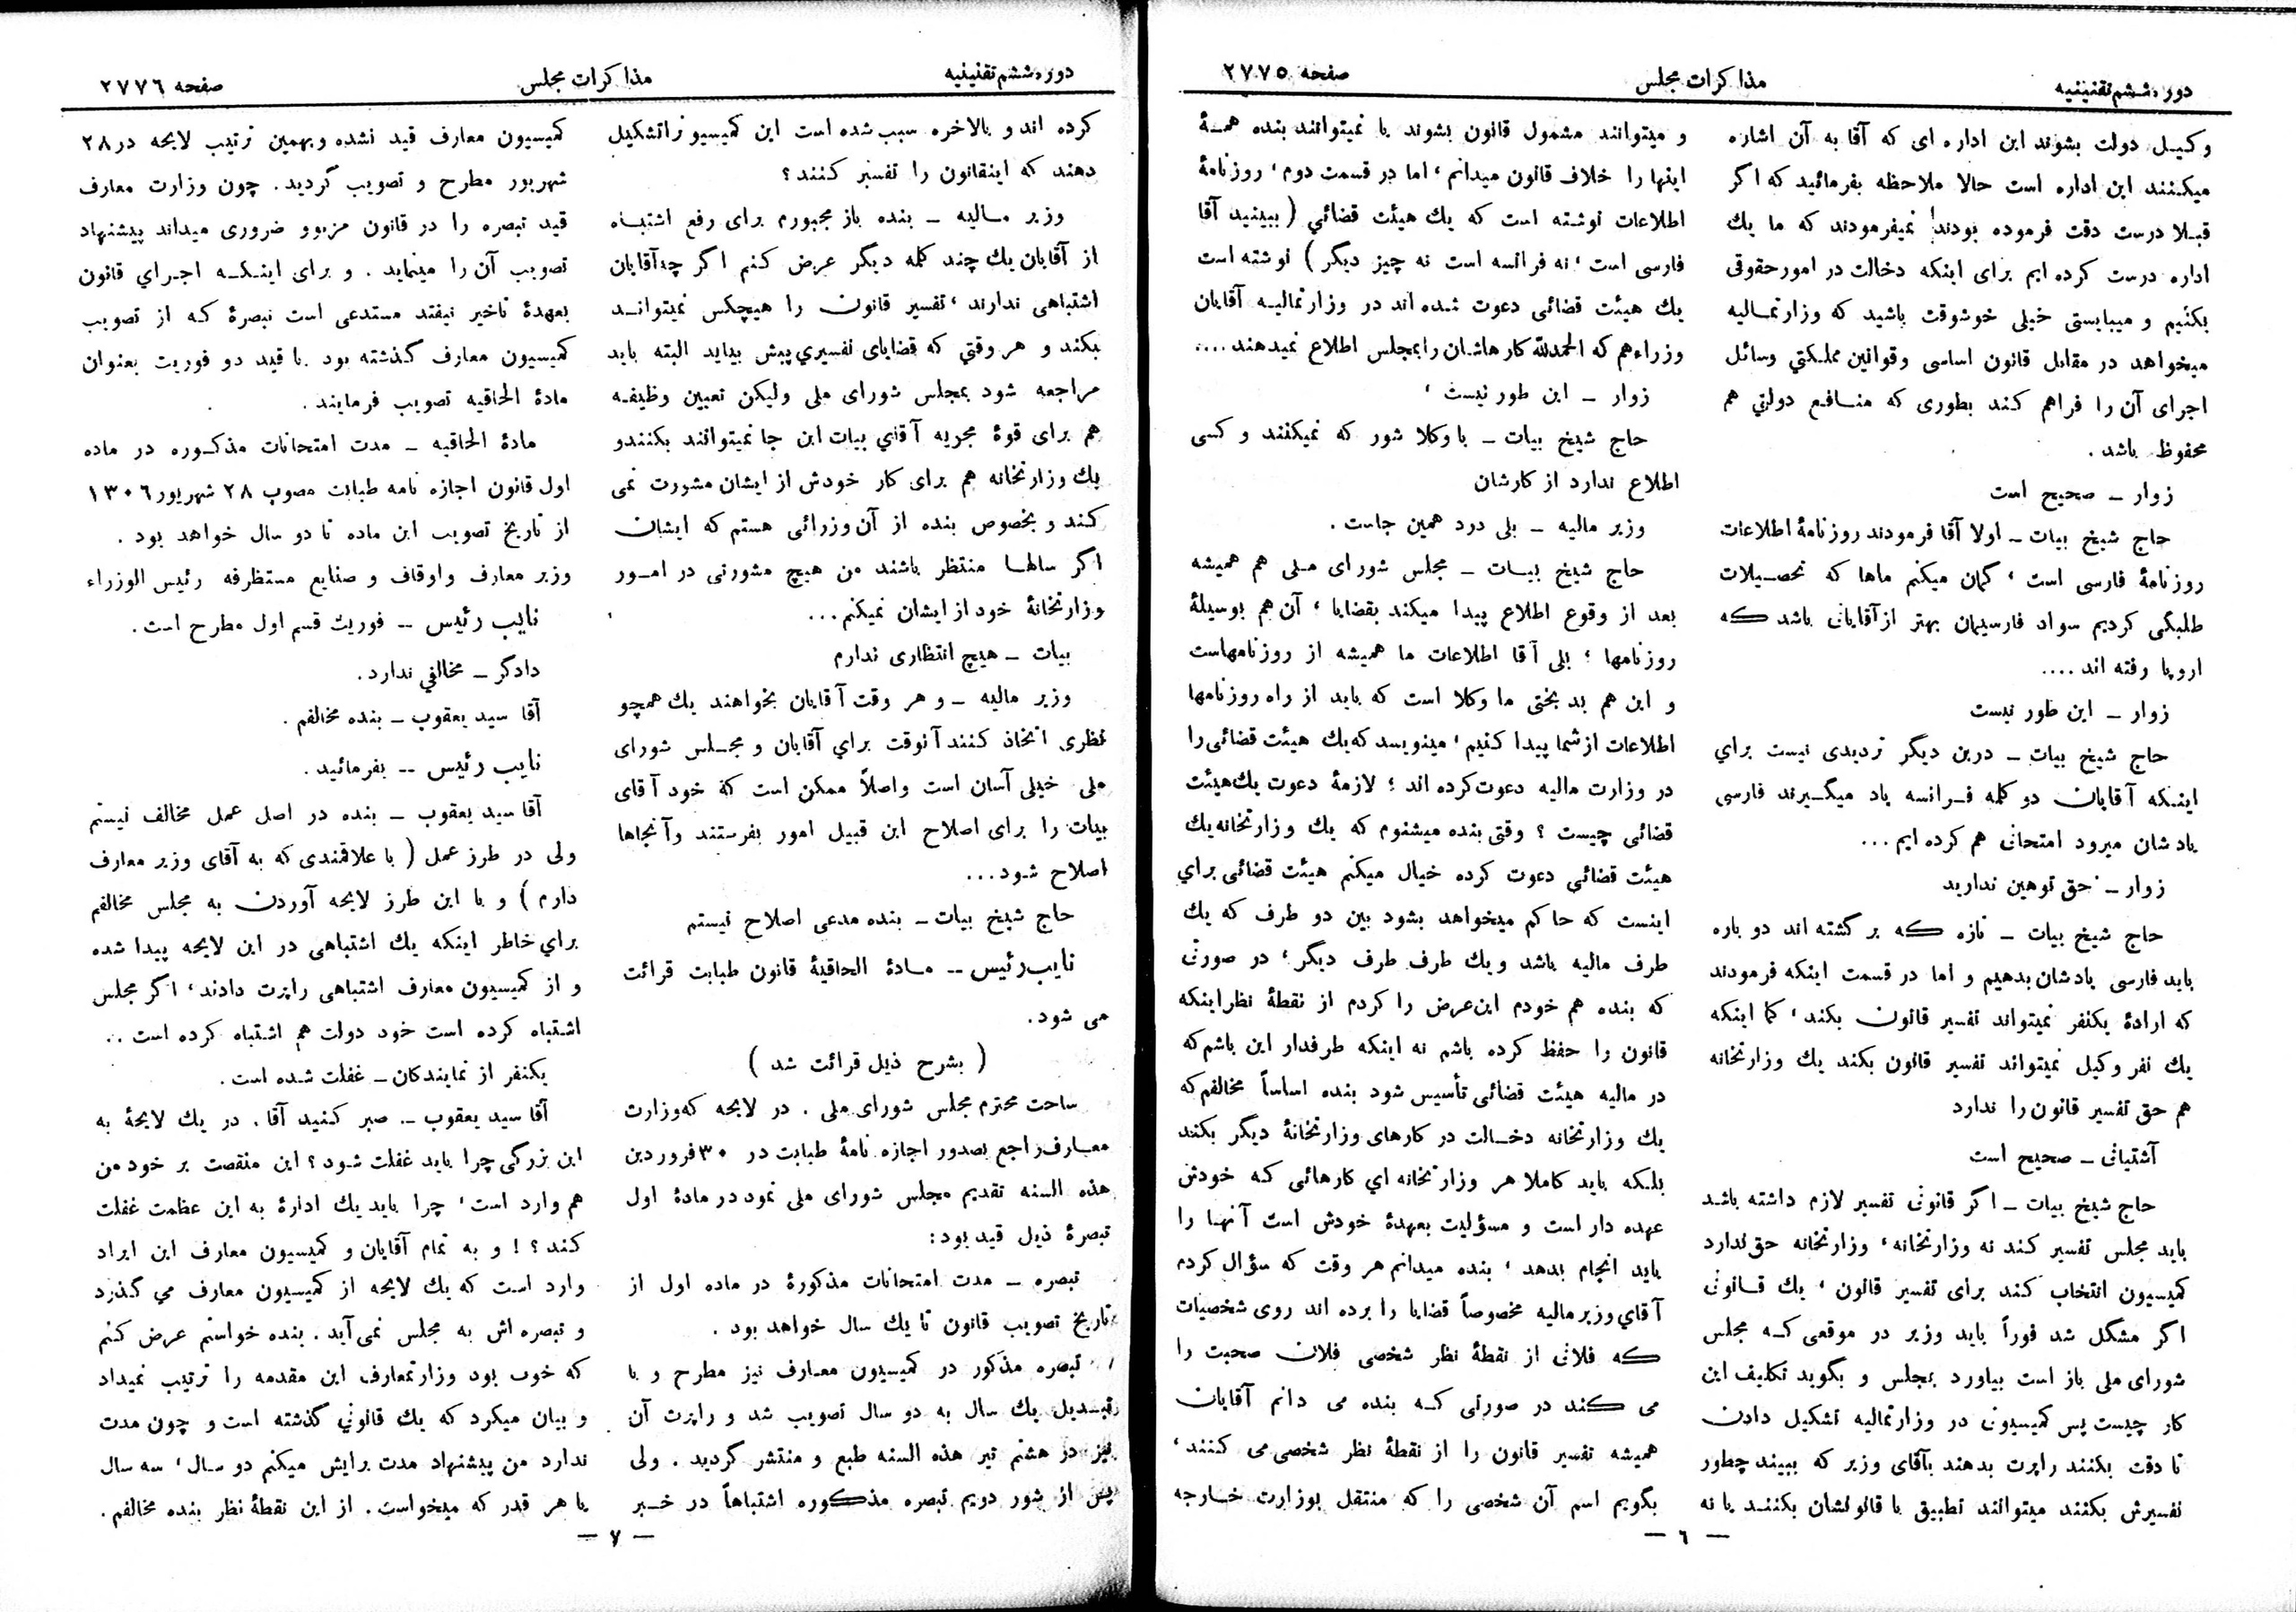 دوره ششم تقنینیه
مذاکرات مجلس
صفحه ۲۷۷۵
وکیل دولت بشوند این اداره ای که آقا به آن اشاره
میکنند این اداره است حالا ملاحظه بفرمائید که اگر
قبلا درست دقت فرموده بودند! نمیفرمودند که ما یك
اداره درست کرده ایم برای اینکه دخالت در امور حقوقی
بکنیم و میبایستی خیلی خوشوقت باشید که وزارتمالیه
میخواهد در مقابل قانون اساسی وقوانین مملکتي وسائل
اجرای آن را فراهم کند بطوری که منافع دولتي هم
محفوظ باشد .
زوار ــ صحیح است
حاج شیخ بیات ــ اولا آقا فرمودند روزنامهٔ اطلاعات
روزنامهٔ فارسی است ، گمان میکنم ماها که تحصیلات
طلبگی کردیم سواد فارسیمان بهتر از آقایانی باشد که
اروپا رفته اند ....
زوار ــ این طور نیست
حاج شیخ بیات ــ درین دیگر تردیدی نیست براي
اینکه آقایان دو کلمه فرانسه یاد میگیرند فارسی
یادشان میرود امتحانی هم کرده ایم ...
زوار ــ حق توهین ندارید
حاج شیخ بیات ــ تازه که بر گشته اند دو باره
باید فارسی یادشان بدهیم و اما در قسمت اینکه فرمودند
که ارادهٔ یکنفر نمیتواند تفسیر قانون بکند ، کما اینکه
یك نفر وکیل نمیتواند تفسیر قانون بکند یك وزارتخانه
هم حق تفسیر قانون را ندارد
آشتیانی ــ صحیح است
حاج شیخ بیات ــ اگر قانونی تفسیر لازم داشته باشد
باید مجلس تفسیر کند نه وزارتخانه ، وزارتخانه حق ندارد
کمیسیون انتخاب کند برای تفسیر قانون ، یك قانونی
اگر مشگل شد فوراً باید وزیر در موقعی که مجلس
شورای ملی باز است بیاورد بمجلس و بگوید تکلیف این
کار چیست پس کمیسیونی در وزارتمالیه تشکیل دادن
تا دقت بکنند راپرت بدهند بآقای وزیر که ببیند چطور
تفسیرش بکنند میتوانند تطبیق با قانونشان بکنند یا نه
و میتوانند مشمول قانون بشوند یا نمیتوانند بنده همهٔ
اینها را خلاف قانون میدانم ، اما در قسمت دوم ، روزنامهٔ
اطلاعات نوشته است که یك هیئت قضائي ( ببینید آقا
فارسی است ، نه فرانسه است نه چیز دیگر ) نوشته است
یك هیئت قضائی دعوت شده اند در وزارتمالیه آقایان
وزراء هم که الحمدلله کار هاشان را بمجلس اطلاع نمیدهند ....
زوار ــ این طور نیست ،
حاج شیخ بیات ــ با وکلا شور که نمیکنند و کسی
اطلاع ندارد از کارشان
وزیر مالیه ــ بلی درد همین جاست .
حاج شیخ بیات ــ مجلس شورای ملی هم همیشه
بعد از وقوع اطلاع پیدا میکند بقضایا ، آن هم بوسیلهٔ
روزنامها ؛ بلی آقا اطلاعات ما همیشه از روزنامهاست
و این هم بد بختی ما وکلا است که باید از راه روزنامها
اطلاعات از شما پیدا کنیم ، مینویسد که یك هیئت قضائی را
در وزارت مالیه دعوت کرده اند ؛ لازمهٔ دعوت یك هیئت
قضائی چیست ؟ وقتی بنده میشنوم که یك وزارتخانه یك
هیئت قضائی دعوت کرده خیال میکنم هیئت قضائی براي
اینست که حاکم میخواهد بشود بین دو طرف که یك
طرف مالیه باشد و یك طرف طرف دیگر ، در صورتی
که بنده هم خودم این عرض را کردم از نقطهٔ نظر اینکه
قانون را حفظ کرده باشم نه اینکه طرفدار این باشم که
در مالیه هیئت قضائی تأسیس شود بنده اساساً مخالفم که
یك وزارتخانه دخالت در کارهای وزارتخانهٔ دیگر بکند
بلکه باید کاملا هر وزارتخانه اي کارهائی که خودش
عهده دار است و مسؤلیت بعهدهٔ خودش است آنها را
باید انجام بدهد ، بنده میدانم هر وقت که سؤال کردم
آقاي وزیر مالیه مخصوصاً قضایا را برده اند روی شخصیات
که فلانی از نقطهٔ نظر شخصی فلان صحبت را
می کند در صورتی که بنده می دانم آقایان
همیشه تفسیر قانون را از نقطهٔ نظر شخصی می کنند ،
بگویم اسم آن شخصی را که منتقل بوزارت خارجه
ــ ٦ ــ
دوره ششم تقنینیه
مذاکرات مجلس
صفحه ۲۷۷٦
کرده اند و بالاخره سبب شده است این کمیسیونرا تشکیل
دهند که اینقانون را تفسیر کنند ؟
وزیر مالیه ــ بنده باز مجبورم برای رفع اشتباه
از آقایان یك چند کلمه دیگر عرض کنم اگر چه آقایان
اشتباهی ندارند ، تفسیر قانون را هیچکس نمیتواند
بکند و هر وقتي که قضایای تفسیري پیش بیاید البته باید
مراجعه شود بمجلس شورای ملی ولیکن تعیین وظیفه
هم برای قوهٔ مجریه آقاي بیات این جا نمیتوانند بکنندو
یك وزارتخانه هم برای کار خودش از ایشان مشورت نمی
کند و بخصوص بنده از آن وزرائی هستم که ایشان
اگر سالها منتظر باشند من هیچ مشورتی در امور
وزارتخانهٔ خود از ایشان نمیکنم ...
بیات ــ هیچ انتظاری ندارم
وزیر مالیه ــ و هر وقت آقایان بخواهند یك همچو
نظری اتخاذ کنند آنوقت براي آقایان و مجلس شورای
ملی خیلی آسان است و اصلاً ممکن است که خود آقای
بیات را برای اصلاح این قبیل امور بفرستند و آنجاها
اصلاح شود ...
حاج شیخ بیات ــ بنده مدعی اصلاح نیستم
نایب رئیس ــ مادهٔ الحاقیهٔ قانون طبابت قرائت
می شود .
( بشرح ذیل قرائت شد )
ساحت محترم مجلس شورای ملی . در لایحه که وزارت
معارف راجع بصدور اجازه نامهٔ طبابت در ۳۰ فروردین
هذه السنه تقدیم مجلس شورای ملی نمود در مادهٔ اول
تبصرهٔ ذیل قید بود :
تبصره ــ مدت امتحانات مذکورهٔ در ماده اول از
تاریخ تصویب قانون تا یك سال خواهد بود .
تبصره مذکور در کمیسیون معارف نیز مطرح و با
تبدیل یك سال به دو سال تصویب شد و راپرت آن
نیز در هشتم تیر هذه السنه طبع و منتشر گردید . ولی
پس از شور دویم تبصره مذکوره اشتباهاً در خبر
کمیسیون معارف قید نشده و بهمین ترتیب لایحه در ۲۸
شهریور مطرح و تصویب گردید . چون وزارت معارف
قید تبصره را در قانون مزبور ضروری میداند پیشنهاد
تصویب آن را مینماید . و برای اینکه اجراي قانون
بعهدهٔ تاخیر نیفتد مستدعی است تبصرهٔ که از تصویب
کمیسیون معارف گذشته بود با قید دو فوریت بعنوان
مادهٔ الحاقیه تصویب فرمایند .
مادهٔ الحاقیه ــ مدت امتحانات مذکوره در ماده
اول قانون اجازه نامه طبابت مصوب ۲۸ شهریور ۱۳۰٦
از تاریخ تصویب این ماده تا دو سال خواهد بود .
وزیر معارف و اوقاف و صنایع مستظرفه رئیس الوزراء
نایب رئیس ــ فوریت قسم اول مطرح است .
دادگر ــ مخالفي ندارد .
آقا سید یعقوب ــ بنده مخالفم .
نایب رئیس ــ بفرمائید .
آقا سید یعقوب ــ بنده در اصل عمل مخالف نیستم
ولی در طرز عمل ( با علاقمندی که به آقای وزیر معارف
دارم ) و با این طرز لایحه آوردن به مجلس مخالفم
براي خاطر اینکه یك اشتباهی در این لایحه پیدا شده
و از کمیسیون معارف اشتباهی راپرت دادند ، اگر مجلس
اشتباه کرده است خود دولت هم اشتباه کرده است ..
یکنفر از نمایندگان ــ غفلت شده است .
آقا سید یعقوب ــ صبر کنید آقا . در یك لایحهٔ به
این بزرگی چرا باید غفلت شود ؟ این منقصت بر خود من
هم وارد است ، چرا باید یك ادارهٔ به این عظمت غفلت
کند ؟ ! و به تمام آقایان و کمیسیون معارف این ایراد
وارد است که یك لایحه از کمیسیون معارف مي گذرد
و تبصره اش به مجلس نمی آید . بنده خواستم عرض کنم
که خوب بود وزارتمعارف این مقدمه را ترتیب نمیداد
و بیان میکرد که یك قانونی گذشته است و چون مدت
ندارد من پیشنهاد مدت برایش میکنم دو سال ، سه سال
یا هر قدر که میخواست . از این نقطهٔ نظر بنده مخالفم .
ــ ۷ ــ